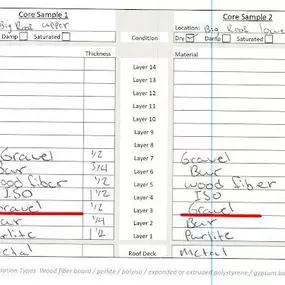 Core Sample 1 Core Sample 2
Big Roof upper Location: Big Roof lowe
Damp Saturated Condition Dry Damp Saturated
Thickness Material
Layer 14
Layer 13
Layer 12
Layer 11
Layer 10
Layer 9
Layer 8
Gravel 1/2 Layer 7 Gravel
Bur 3/4 Layer 6 Bur
wood fiber 1/2 Layer 5 wood fiber
ISO 1 1/2 Layer 4 ISO
Gravel 1/2 Layer 3 Gravel
Bur 3/4 Layer 2 Bur
Perlite 1 1/2 Layer 1 Purlite
metal Roof Deck metal
lation Types: Wood fiber board / perlite / polyiso / expanded or extruded polystyrene / gypsum bo